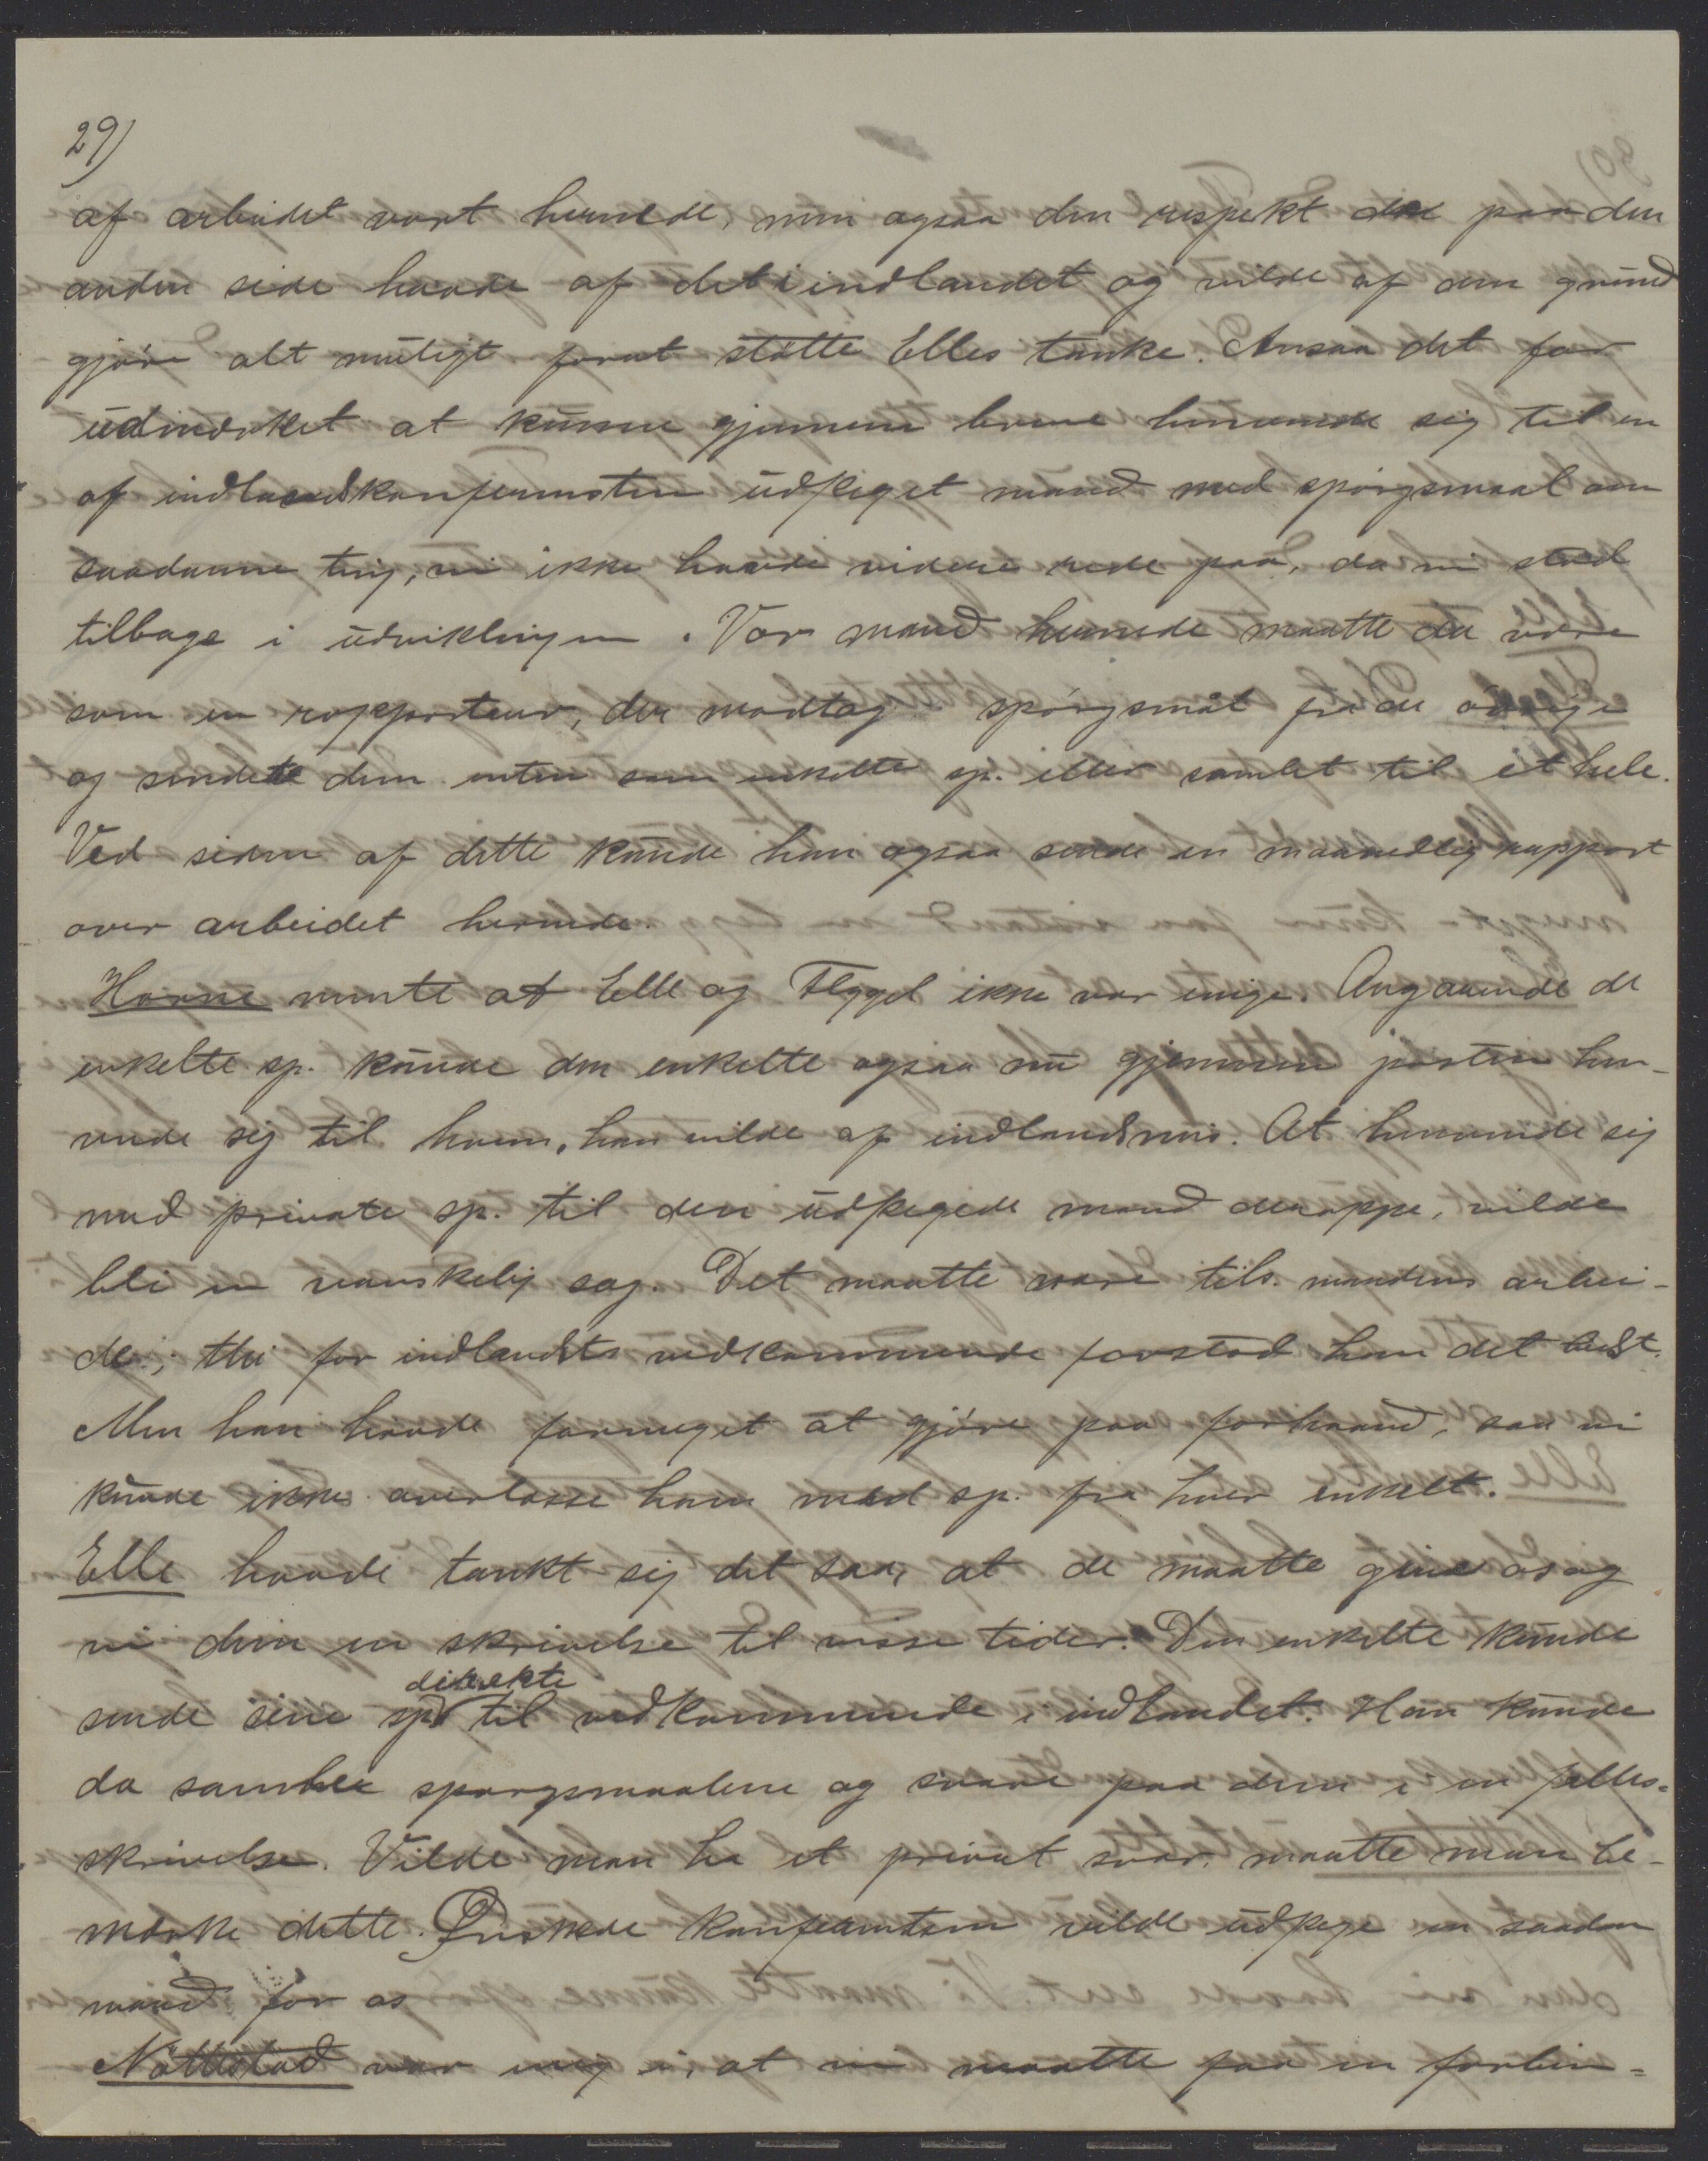 29)
af arbeidet vort hernede, men ogsaa den respekt de paa den
anden side havde af det i indlandet og vilde af den grund
gjøre alt muligt forat støtte Elles tanke. Ansaa det for
udmærket at kunne gjennem breve henvende sig til en
af indlandskonferensten udpeget mand med spørgsmaal om
saadanne ting, vi ikke havde videre rede paa, da vi stod
tilbage i udviklingen. Vor mand hernede maatte da være
som en rapporteur, der modtog spørgsmål fra de øvrige
og sendete dem enten som enkelte sp. eller samlet til et hele.
Ved siden af dette kunde han ogsaa sende en maanedlig rapport
over arbeidet hernede.
Horne mente at Elle og Fløgel ikke var enige. Angaaende de
enkelte sp. kunde den enkelte ogsaa nu gjennem posten hen-
vende sig til hvem, han vilde af indlandsmis. At henvende sig
med private sp. til den udpegede mand deroppe, vilde
bli en vanskelig sag. Det maatte være tils. mandens arbei-
de; thi for indlandets vedkommende forstod han det bedst.
Men han havde formeget at gjøre paa forhaand, saa vi
kunde ikke overlæsse ham med sp. fra hver enkelt.
Elle havde tænkt sig det saa, at de maatte give os og
vi dem en skrivelse til visse tider. Den enkelte kunde
direkte
sende sine sp. til vedkommende i indlandet. Han kunde
da samle spørgsmaalene og svare paa dem i en fælles-
skrivelse. Vilde man ha et privat svar, maatte man be-
mærke dette. Ønskede konferentsen vilde udpege en saadan
mand for os
Nøttestad var enig i, at vi maatte faa en forbin-